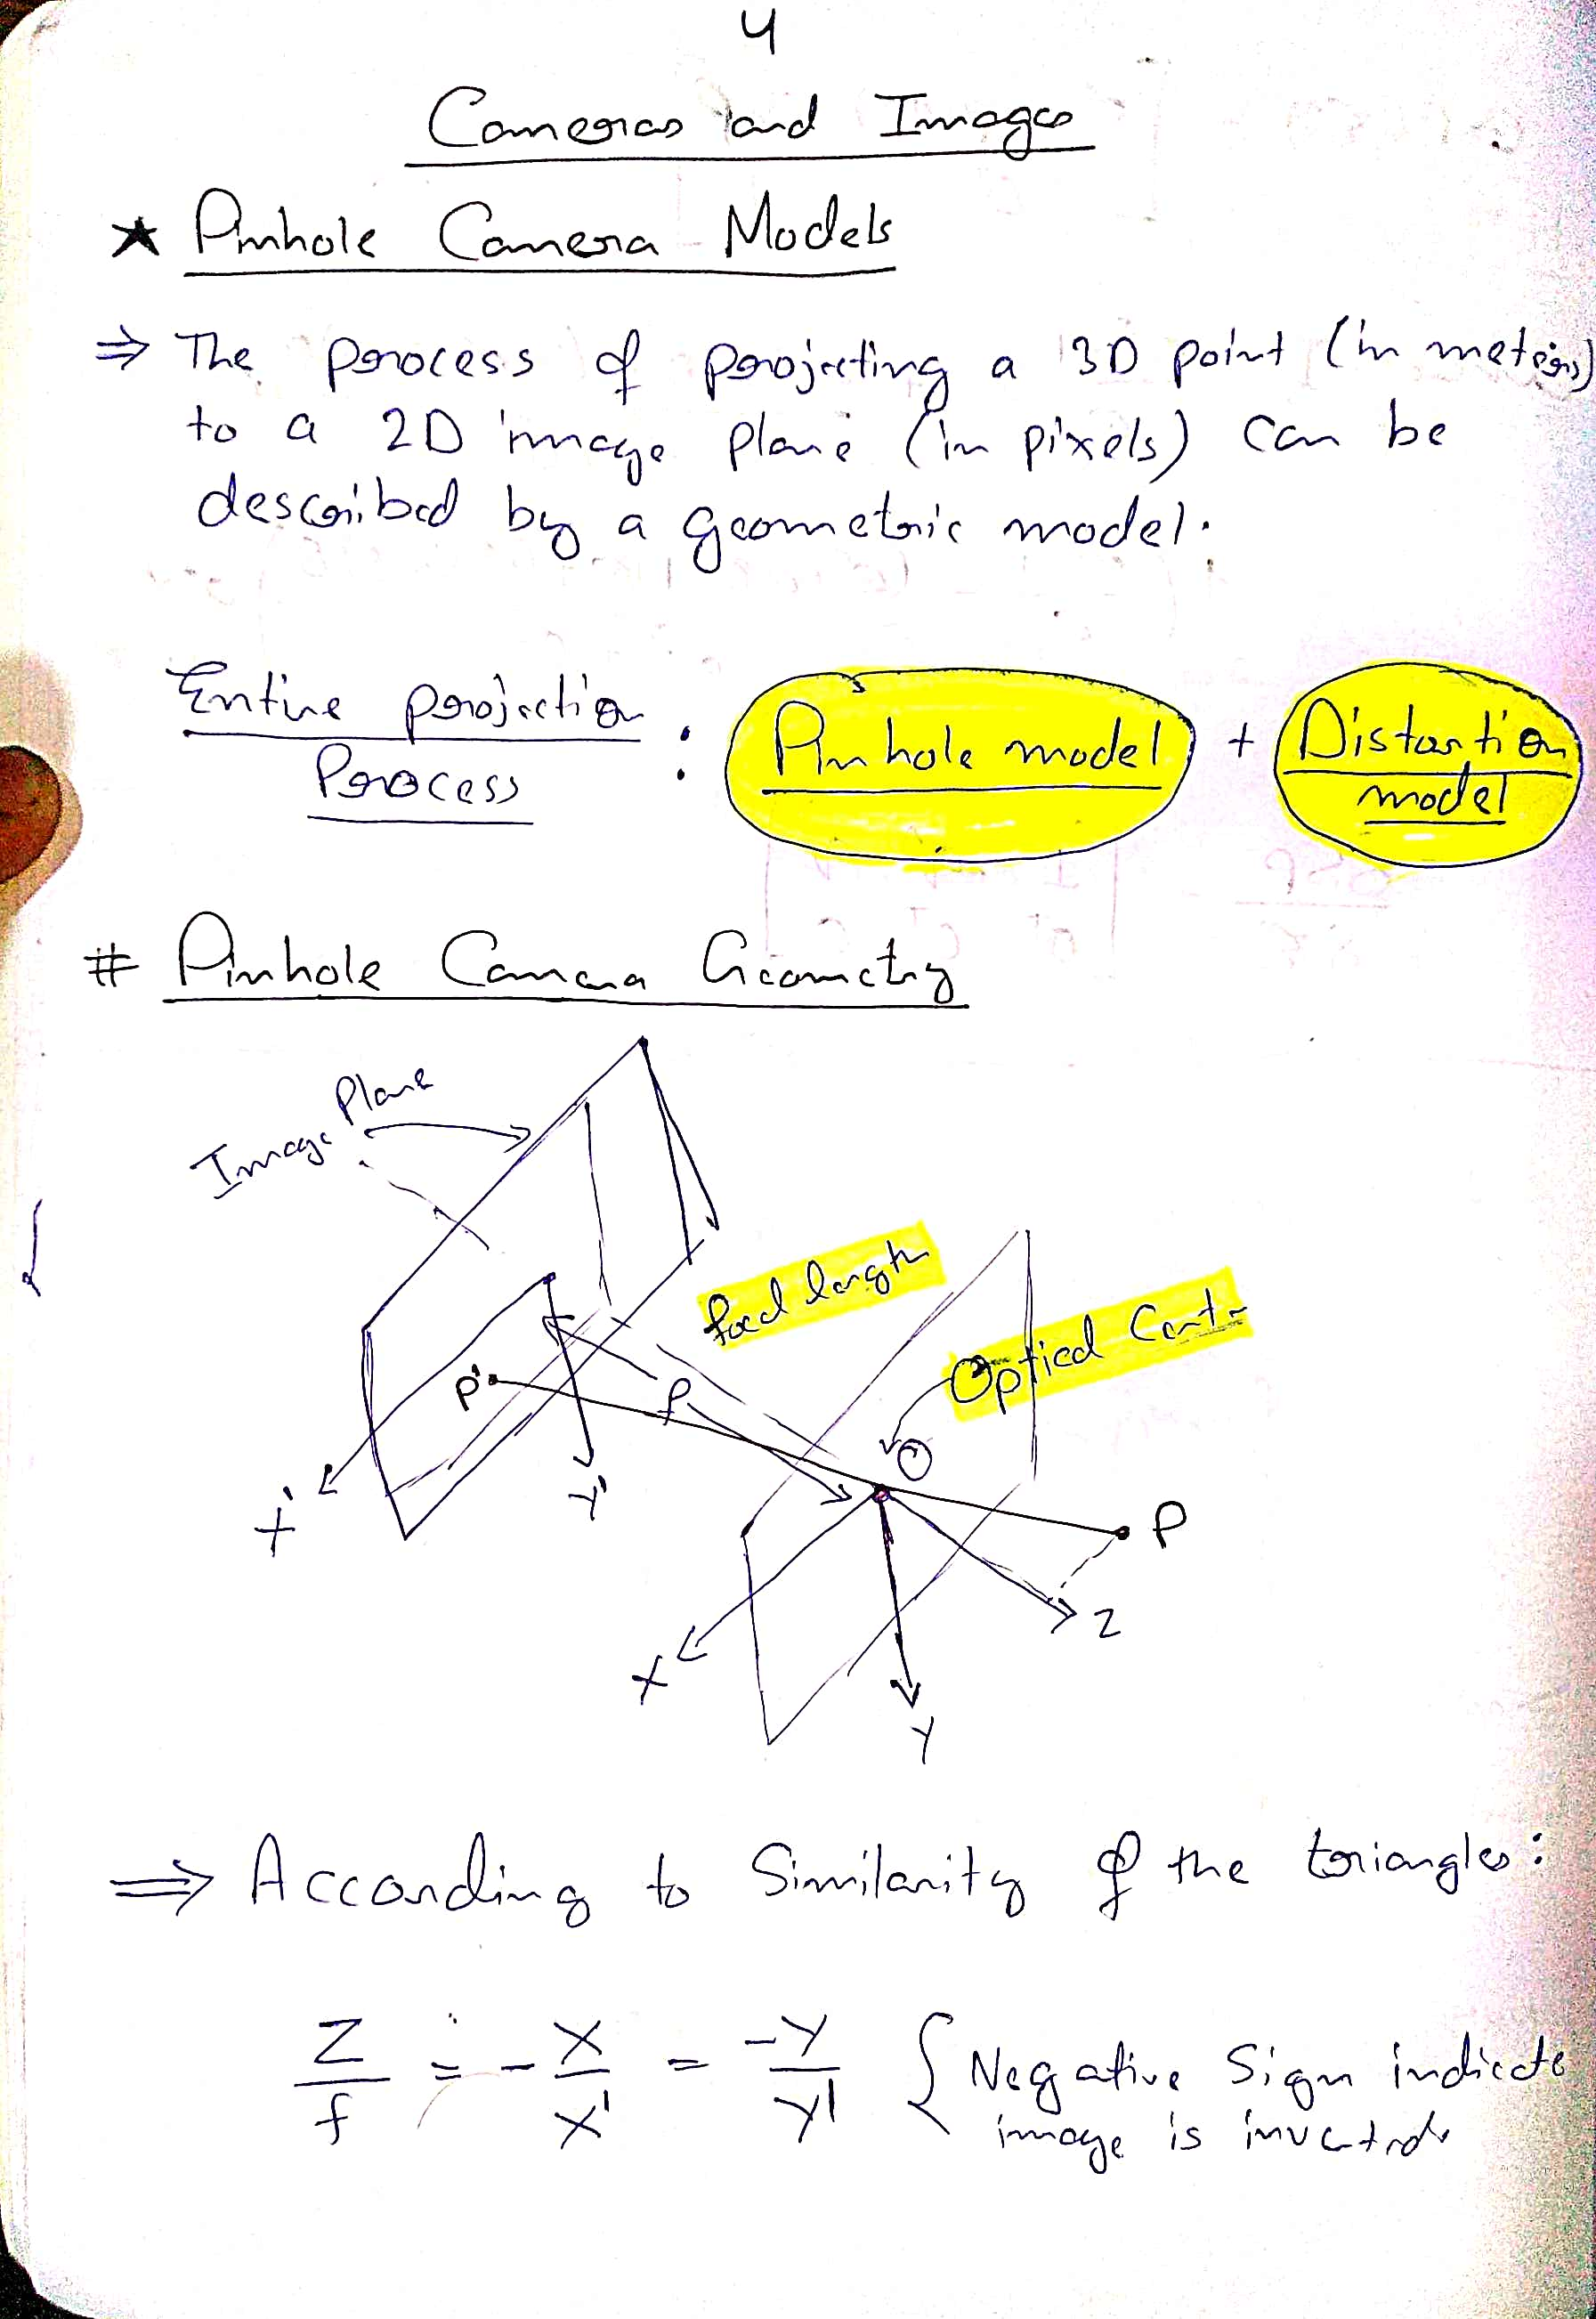 4
Cameras and Images
★ Pinhole Camera Models
⇒ The process of projecting a 3D point (in meters)
to a 2D image plane (in pixels) can be
described by a geometric model.
Entire projection
Process : Pinhole model + Distortion
model
# Pinhole Camera Geometry
Image Plane
focal length
Optical Center
P'
f
O
X'
Y'
P
Z
X
Y
⇒ According to Similarity of the triangles:
Z/f = -X/X' = -Y/Y' { Negative Sign indicate
image is inverted